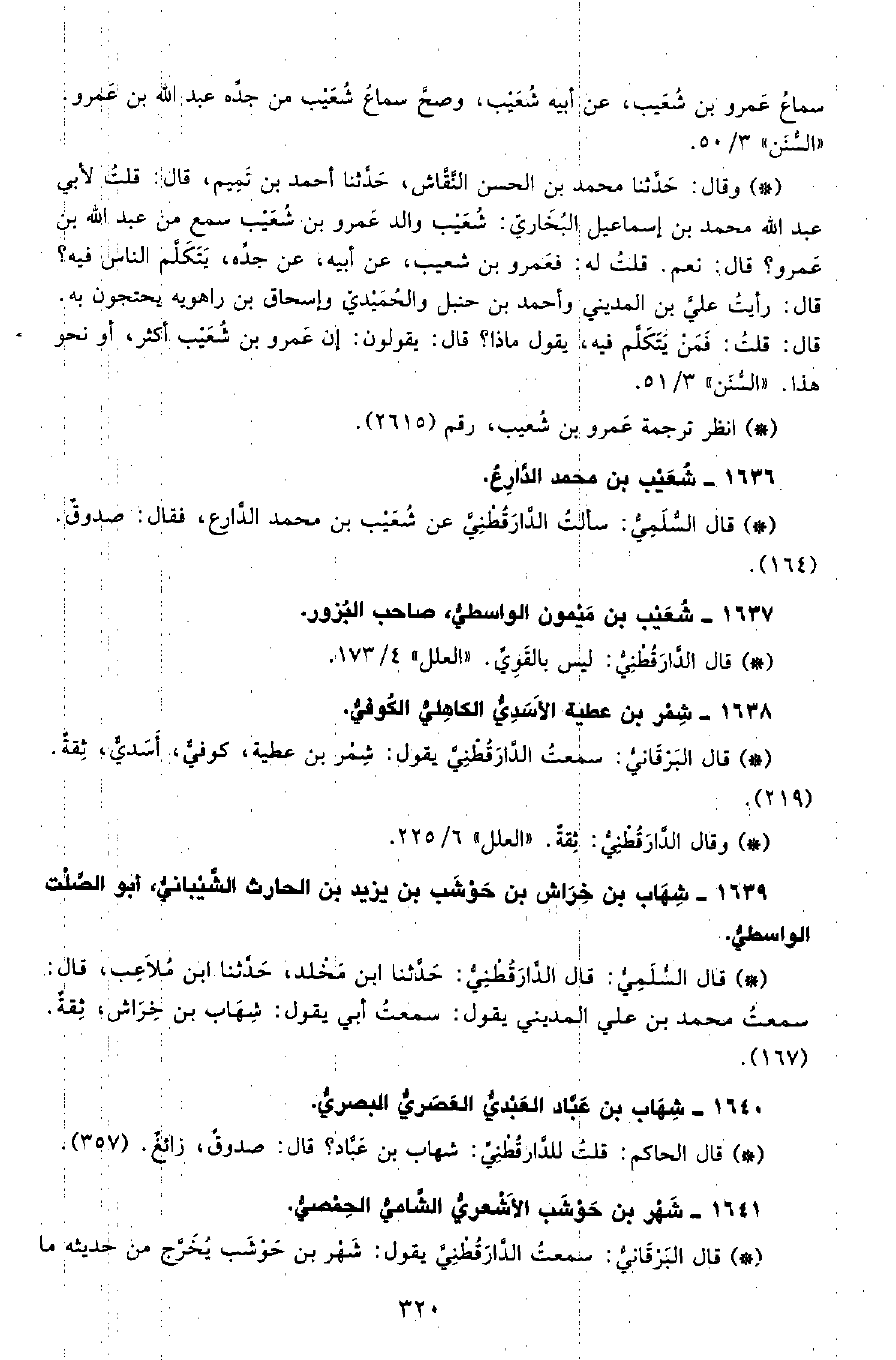 سماعُ عَمرو بن شُعَيب، عن أبيه شُعَيْب، وصحَّ سماعُ شُعَيْب من جدِّه عبد الله بن عَمرو.
«السُّنَن» ٣/ ٥٠.
(*) وقال: حَدَّثنا محمد بن الحسن النَّقَّاش، حَدَّثنا أحمد بن تَمِيم، قال: قلتُ لأبي
عبد الله محمد بن إسماعيل البُخَاريّ: شُعَيْب والد عَمرو بن شُعَيْب سمع من عبد الله بن
عَمرو؟ قال: نعم. قلتُ له: فعَمرو بن شعيب، عن أبيه، عن جدِّه، يَتَكلَّم الناس فيه؟
قال: رأيتُ عليَّ بن المديني وأحمد بن حنبل والحُمَيْديّ وإسحاق بن راهويه يحتجون به.
قال: قلتُ: فَمَنْ يَتَكَلَّم فيه، يقول ماذا؟ قال: يقولون: إن عَمرو بن شُعَيْب أكثر، أو نحو
هذا. «السُّنَن» ٣/ ٥١.
(*) انظر ترجمة عَمرو بن شُعيب، رقم (٢٦١٥).
١٦٣٦ ـ شُعَيْب بن محمد الدَّارِعُ.
(*) قال السُّلَمِيُّ: سألتُ الدَّارَقُطْنِيَّ عن شُعَيْب بن محمد الدَّارع، فقال: صدوقٌ.
(١٦٤).
١٦٣٧ ـ شُعَيْب بن مَيْمون الواسطيُّ، صاحب البُزور.
(*) قال الدَّارَقُطْنِيُّ: ليس بالقَوِيِّ. «العلل» ٤/ ١٧٣.
١٦٣٨ ـ شِمْر بن عطية الأسَدِيُّ الكاهِليُّ الكُوفيُّ.
(*) قال البَرْقَانيُّ: سمعتُ الدَّارَقُطْنِيَّ يقول: شِمْر بن عطية، كوفيٌّ، أَسَديٌّ، ثِقةٌ.
(٢١٩).
(*) وقال الدَّارَقُطْنِيُّ: ثِقةٌ. «العلل» ٦/ ٢٢٥.
١٦٣٩ ـ شِهَاب بن خِرَاش بن حَوْشَب بن يزيد بن الحارث الشَّيْبانيُّ، أبو الصَّلْت
الواسطيُّ.
(*) قال السُّلَمِيُّ: قال الدَّارَقُطْنِيُّ: حَدَّثنا ابن مَخْلد، حَدَّثنا ابن مُلاَعِب، قال:
سمعتُ محمد بن علي المديني يقول: سمعتُ أبي يقول: شِهَاب بن خِرَاش، ثِقةٌ.
(١٦٧).
١٦٤٠ ـ شِهَاب بن عَبَّاد العَبْديُّ العَصَريُّ البصريُّ.
(*) قال الحاكم: قلتُ للدَّارقُطْنِيِّ: شهاب بن عَبَّاد؟ قال: صدوقٌ، زائغٌ. (٣٥٧).
١٦٤١ ـ شَهْر بن حَوْشَب الأشْعريُّ الشَّاميُّ الحِمْصيُّ.
(*) قال البَرْقَانيُّ: سمعتُ الدَّارَقُطْنِيَّ يقول: شَهْر بن حَوْشَب يُخَرَّج من حديثه ما
٣٢٠